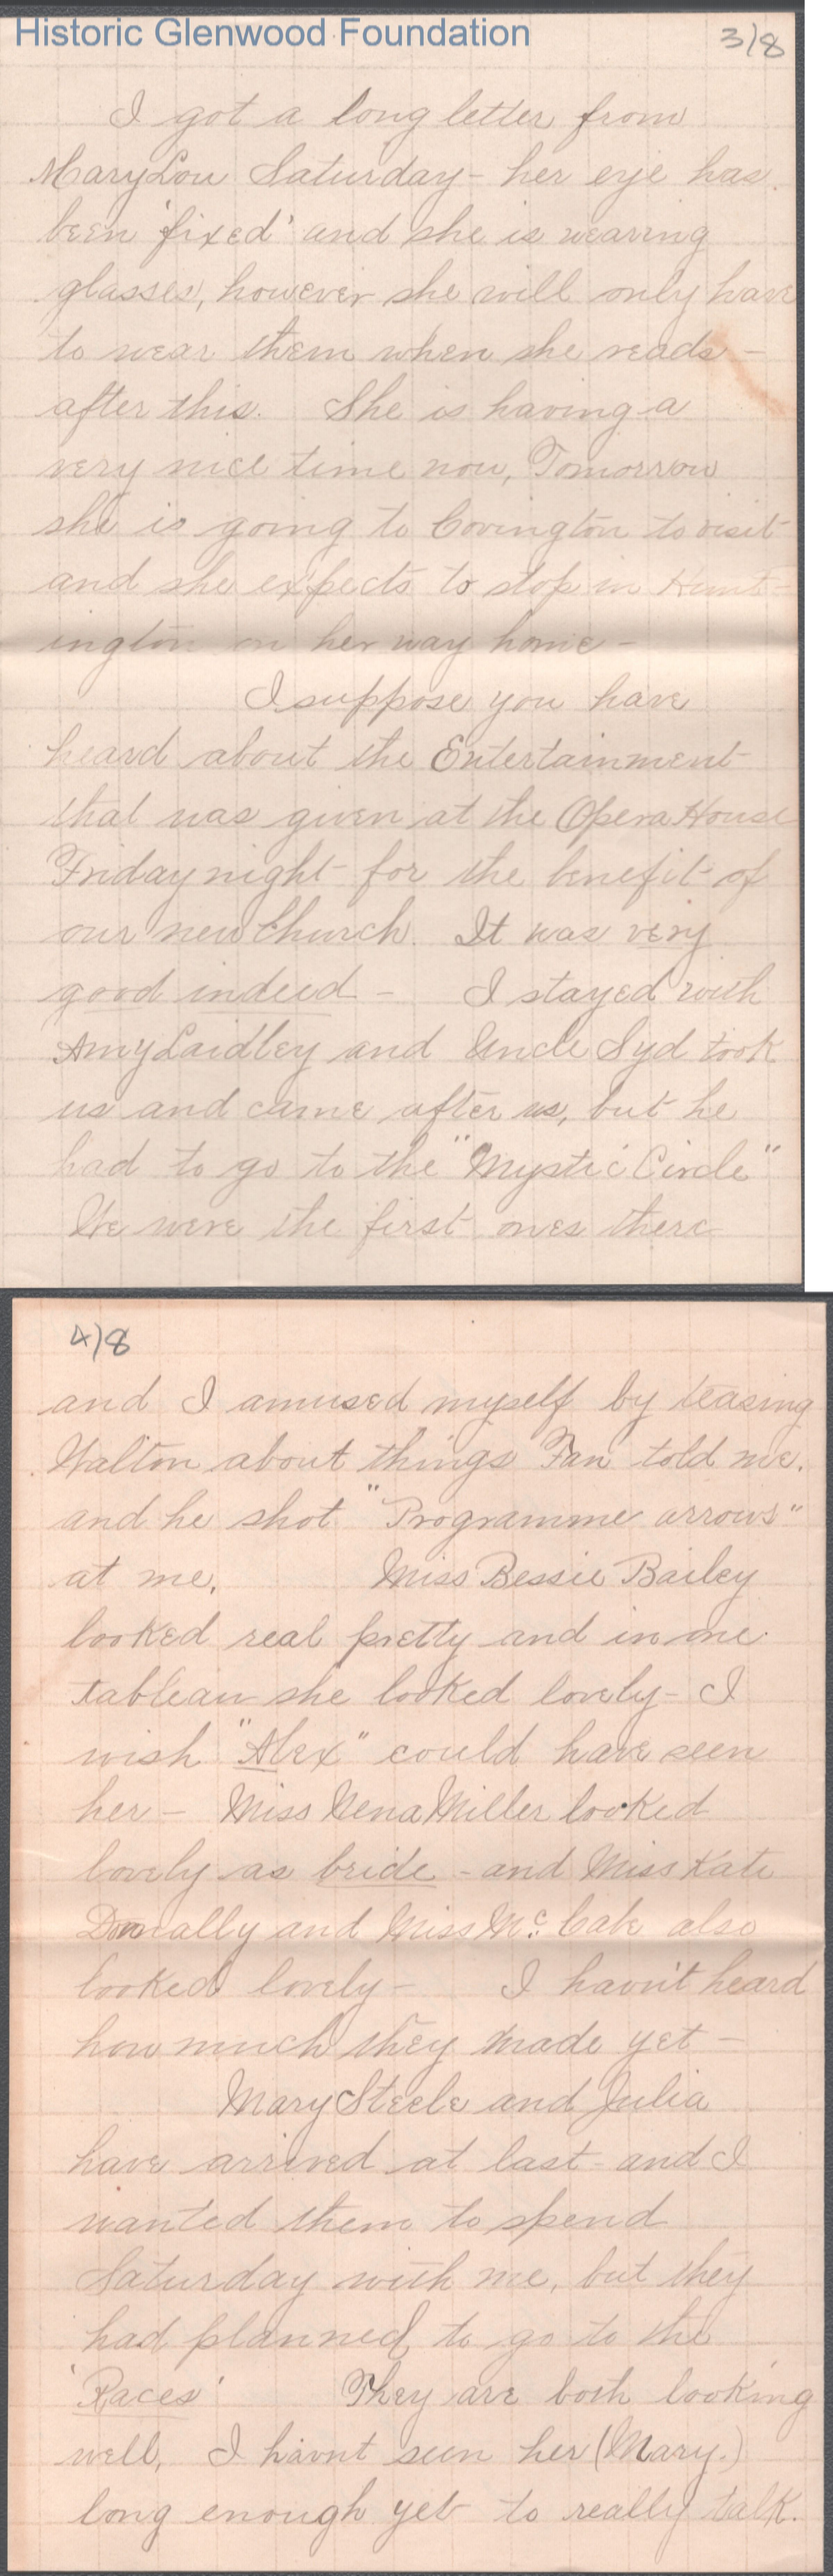 Historic Glenwood Foundation
3/8
I got a long letter from
Mary Lou Saturday - her eye has
been 'fixed' and she is wearing
glasses, however she will only have
to wear them when she reads -
after this. She is having a
very nice time now, Tomorrow
she is going to Covington to visit
and she expects to stop in Hunt-
ington on her way home -
I suppose you have
heard about the Entertainment
that was given at the Opera House
Friday night for the benefit of
our new Church. It was very
good indeed - I stayed with
Amy Laidley and Uncle Syd took
us and came after us, but he
had to go to the "Mystic Circle"
We were the first ones there
4/8
and I amused myself by teasing
Walton about things Fan told me.
and he shot "Programme arrows"
at me. Miss Bessie Bailey
looked real pretty and in one
tableau she looked lovely - I
wish "Alex" could have seen
her - Miss Nena Miller looked
lovely as bride - and Miss Kate
Donnally and Miss Mc. Cabe also
looked lovely - I havn't heard
how much they made yet -
Mary Steele and Julia
have arrived at last - and I
wanted them to spend
Saturday with me, but they
had planned to go to the
'Races' They are both looking
well, I havnt seen her (Mary.)
long enough yet to really talk.